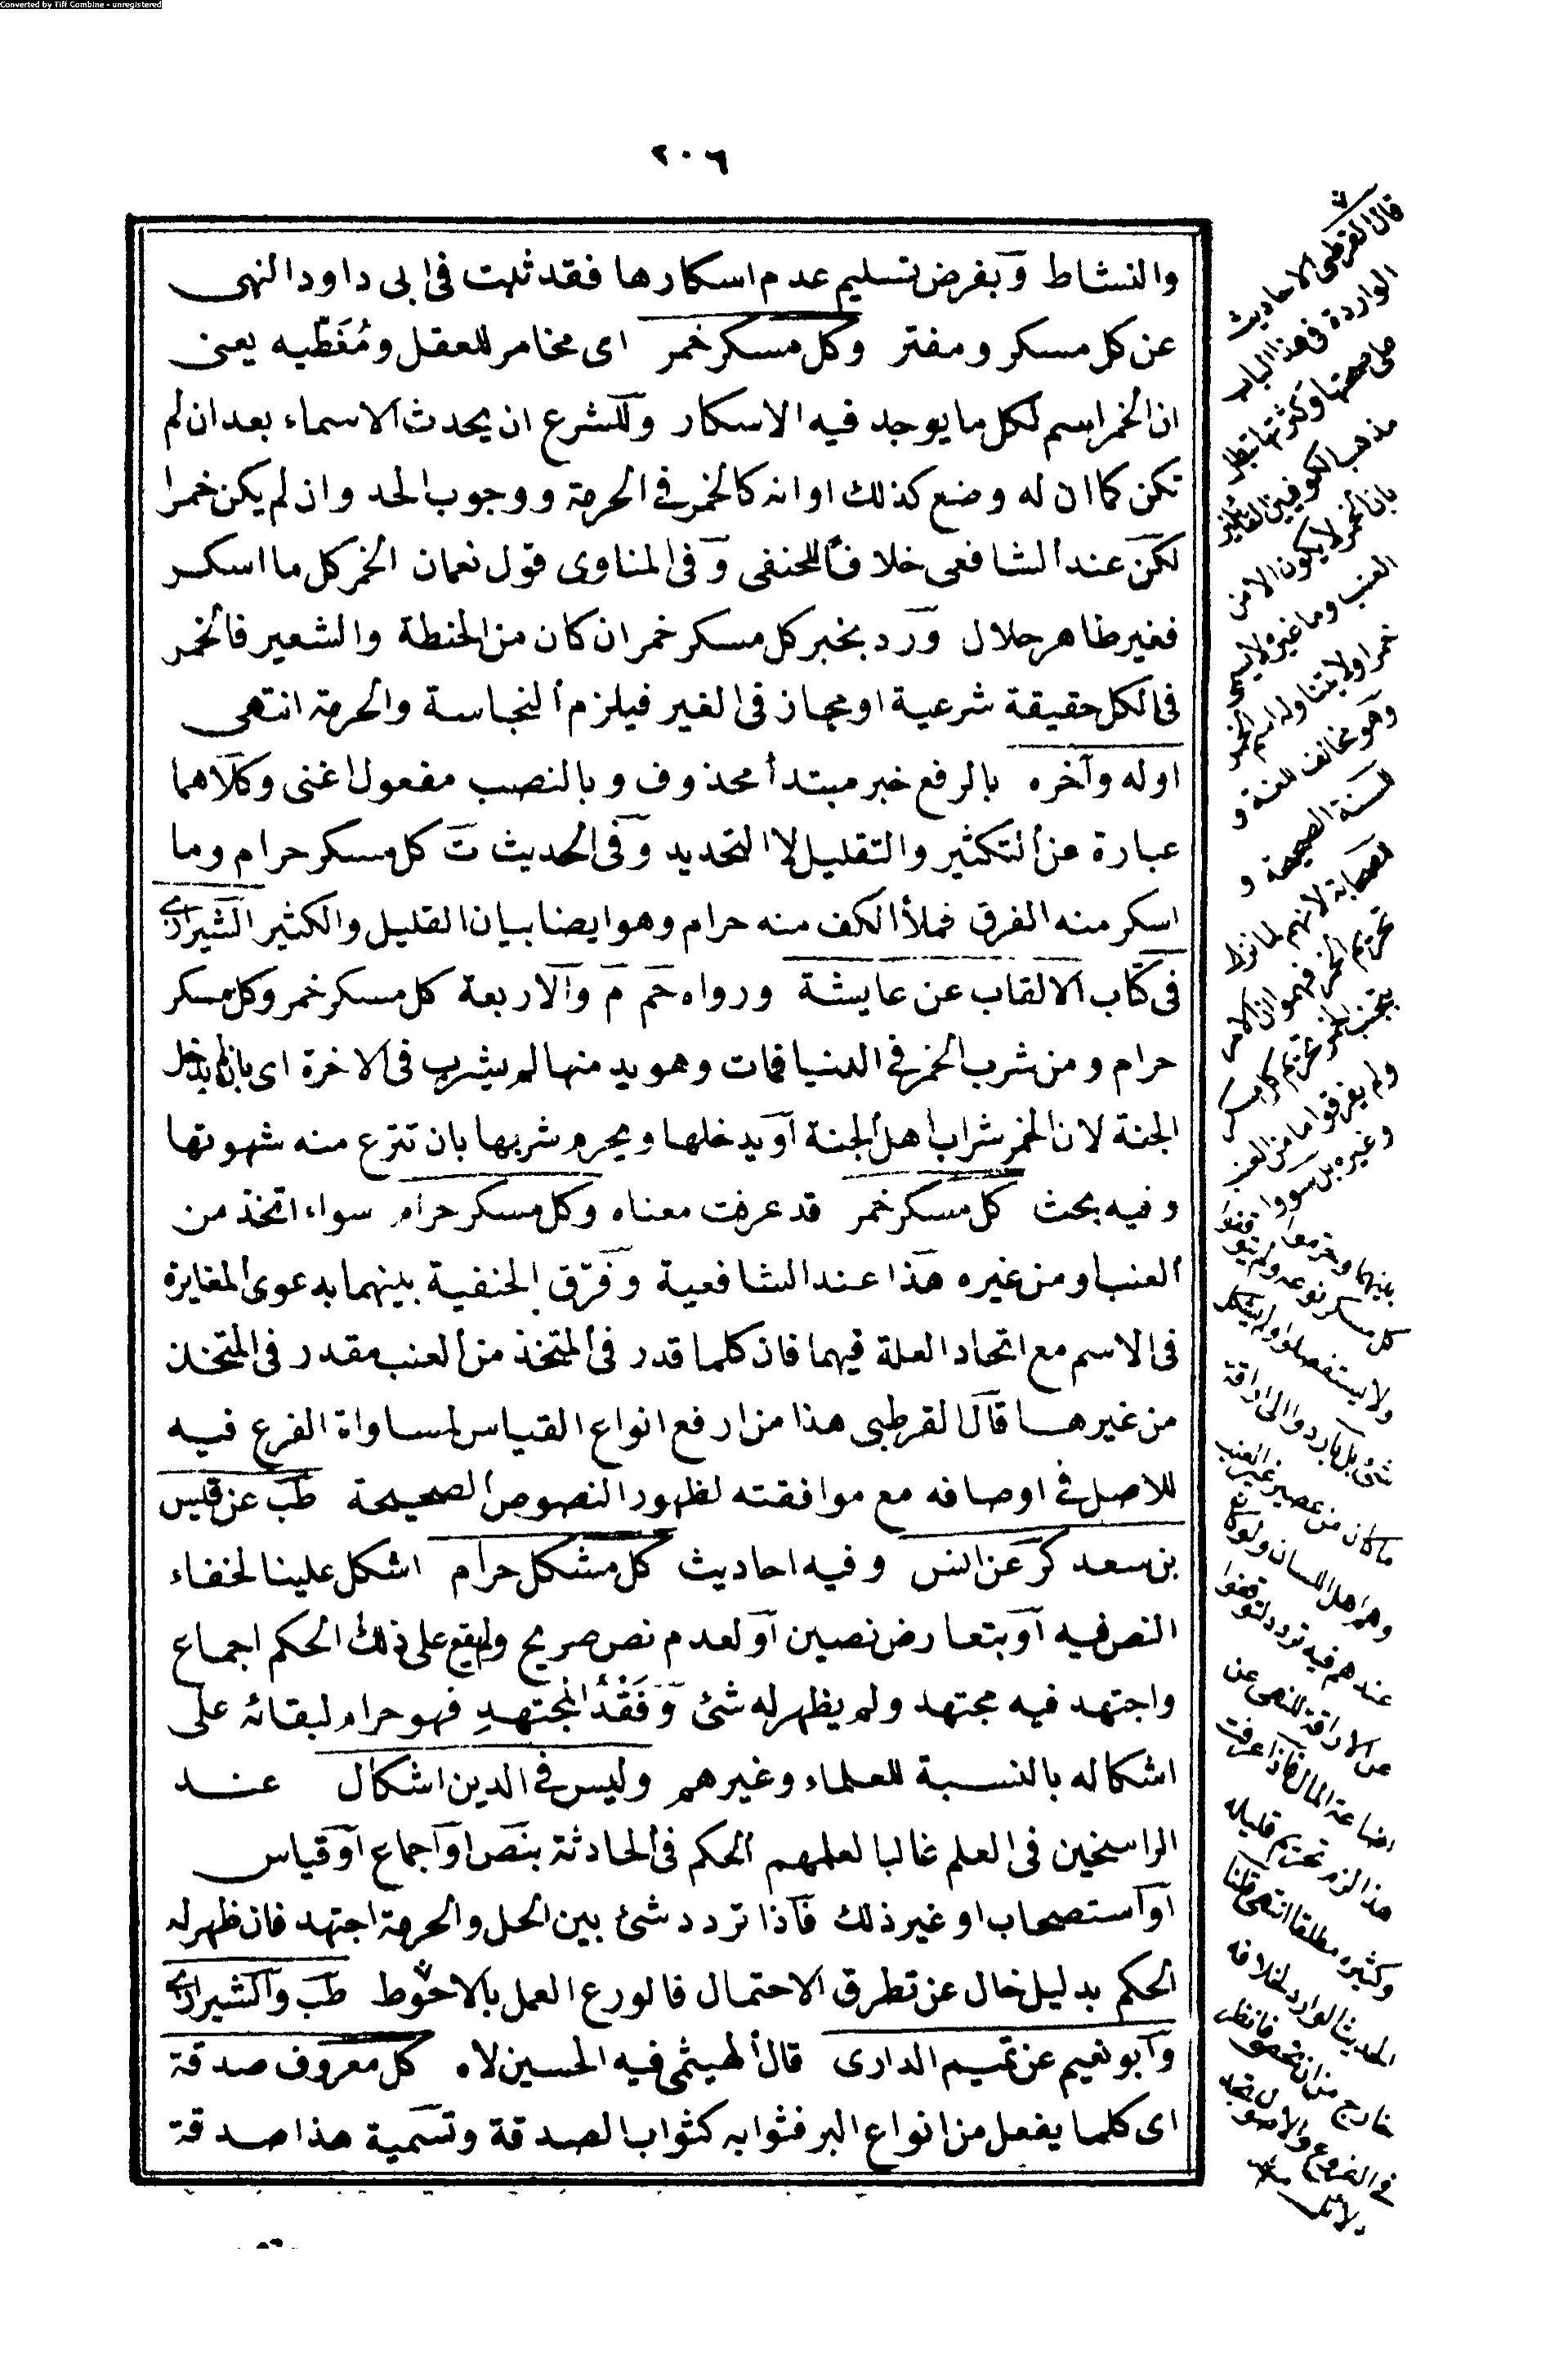 Converted by Tiff Combine - unregistered
٢٠٦
والنشاط وبفرض تسليم عدم اسكارها فقد ثبت فى ابى داود النهى
عن كل مسكر ومفتر وكل مسكر خمر اى مخامر للعقل ومُغَطّيه يعنى
ان الخمر اسم لكل ما يوجد فيه الاسكار وللشرع ان يحدث الاسماء بعد ان لم
تكن كما ان له وضع كذلك او انه كالخمر فى الحرمة ووجوب الحد وان لم يكن خمرا
لكن عند الشافعى خلافا للحنفى وفى المناوى قول نعمان الخمر كل ما اسكر
فغير طاهر حلال ورد بخبر كل مسكر خمر ان كان من الحنطة والشعير فالخمر
فى الكل حقيقة شرعية او مجاز فى الغير فيلزم النجاسة والحرمة انتهى
اوله وآخره بالرفع خبر مبتدأ محذوف وبالنصب مفعول اغنى وكلاهما
عبارة عن التكثير والتقليل لا التحديد وفى الحديث ت كل مسكر حرام وما
اسكر منه الفرق فملأ الكف منه حرام وهو ايضا بيان القليل والكثير الشيرازى
فى كتاب الالقاب عن عايشة ورواه حم م والاربعة كل مسكر خمر وكل مسكر
حرام ومن شرب الخمر فى الدنيا فمات وهو يدمنها لم يشرب فى الاخرة اى بان لم يدخل
الجنة لان الخمر شراب اهل الجنة او يدخلها ويحرم شربها بان تنزع منه شهوتها
وفيه بحث كل مسكر خمر قد عرفت معناه وكل مسكر حرام سواء اتخذ من
العنب او من غيره هذا عند الشافعية وفرّق الحنفية بينهما بدعوى المغايرة
فى الاسم مع اتحاد العلة فيهما فان كلما قدر فى المتخذ من العنب مقدر فى المتخذ
من غيرها قال القرطبى هذا من ارفع انواع القياس لمساواة الفرع فيه
للاصل فى اوصافه مع موافقته لظهور النصوص الصحيحة طب عن قيس
بن سعد كر عن انس وفيه احاديث كل مشكل حرام اشكل علينا لخفاء
النص فيه او بتعارض نصين او لعدم نص صريح ولم يقع على ذلك الحكم اجماع
واجتهد فيه مجتهد ولم يظهر له شئ وَفَقْدُ المجتهدِ فهو حرام لبقائه على
اشكاله بالنسبة للعلماء وغيرهم وليس فى الدين اشكال عند
الراسخين فى العلم غالبا لعلمهم الحكم فى الحادثة بنص او اجماع او قياس
او استصحاب او غير ذلك فاذا تردد شئ بين الحل والحرمة اجتهد فان ظهر له
الحكم بدليل خال عن تطرق الاحتمال فالورع العمل بالاحوط طب والشيرازى
وابو نعيم عن تميم الدارى قال الهيثمى فيه الحسين لاه كل معروف صدقة
اى كلما يفعل من انواع البر فثوابه كثواب الصدقة وتسمية هذا صدقة
قال القرطبى الاحاديث
الواردة فى هذا الباب
على صحتها وكثرتها تبطل
مذهب الكوفيين القائلين
بان الخمر لا يكون الا من
العنب وما غيره لا يسمى
خمرا ولا يتناوله اسم الخمر
وهو مخالف للغة و
للسنة الصحيحة و
للصحابة لانهم لما نزل
تحريم الخمر فهموا ان الامر
بتجنب الخمر تحريم كل مسكر
ولم يفرقوا ما من العنب
وغيره بل سووا
بينهما وحرموا
كل مسكر نوعه ولم يتوقفوا
ولا يستفصلوا ولم يشكل
شئ بل بادروا الى اراقة
ما كان من عصير غير العنب
وهم اهل اللسان ولو كان
عندهم فيه تردد لتوقفوا
عن الاراقة للنهى عن
اضاعة المال فاذا عرفت
هذا لزم تحريم قليله
وكثيره مطلقا انتهى قلنا
الحديث الوارد بخلافه